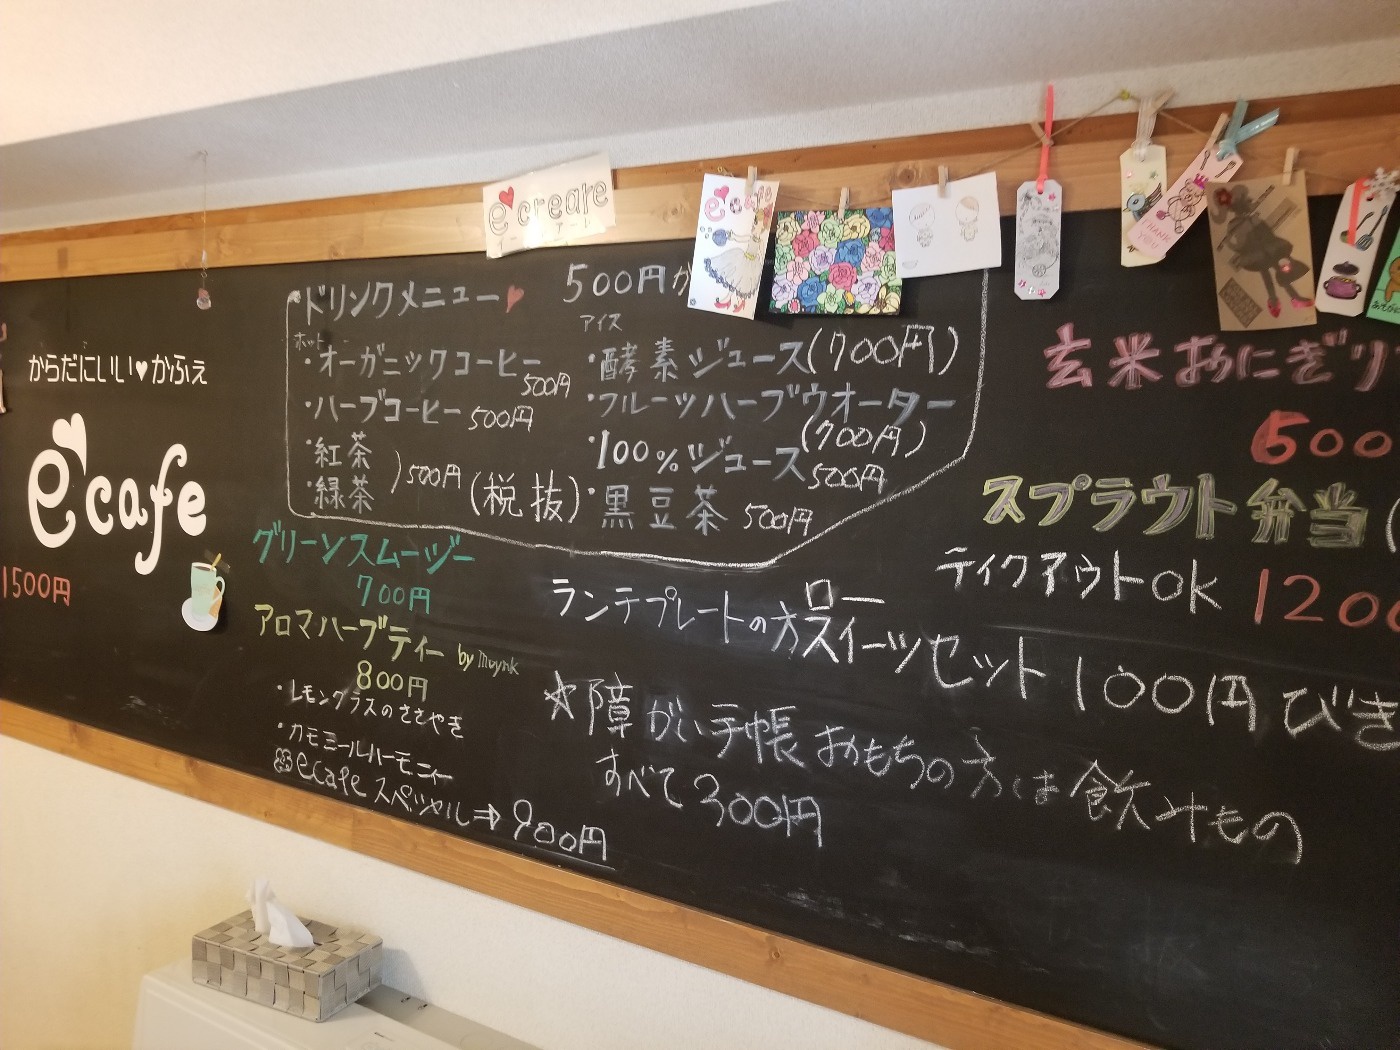 e create
e cafe
THANK YOU
からだにいい♥かふぇ
e cafe
1500円
ドリンクメニュー♥
500円か
ホット
・オーガニックコーヒー
500円
・ハーブコーヒー 500円
・紅茶
・緑茶
)500円 (税抜)
アイス
・酵素ジュース(700円)
・フルーツハーブウオーター
(700円)
・100%ジュース
500円
・黒豆茶 500円
グリーンスムージー
700円
アロマハーブティー by
800円
・レモングラスのささやき
・カモミールハーモニー
ecafeスペシャル⇒900円
玄米おにぎり
600
スプラウト弁当(
テイクアウトOK 1200
ランチプレートの方ロースイーツセット 100円びき
☆障がい手帳おもちの方は飲みもの
すべて300円